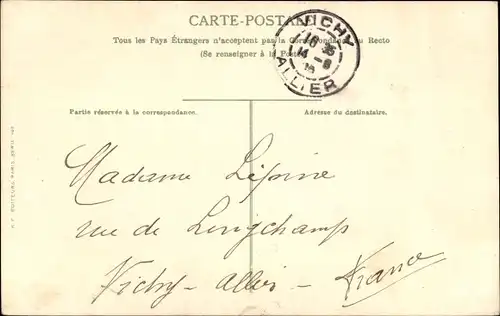 CARTE-POSTALE
VICHY
ALLIER
Tous les Pays Étrangers n'acceptent pas la Correspondance au Recto
(Se renseigner à la Poste)
Partie réservée à la correspondance.
Adresse du destinataire.
Madame Lépine
rue de Longchamp
Vichy - Allier - France